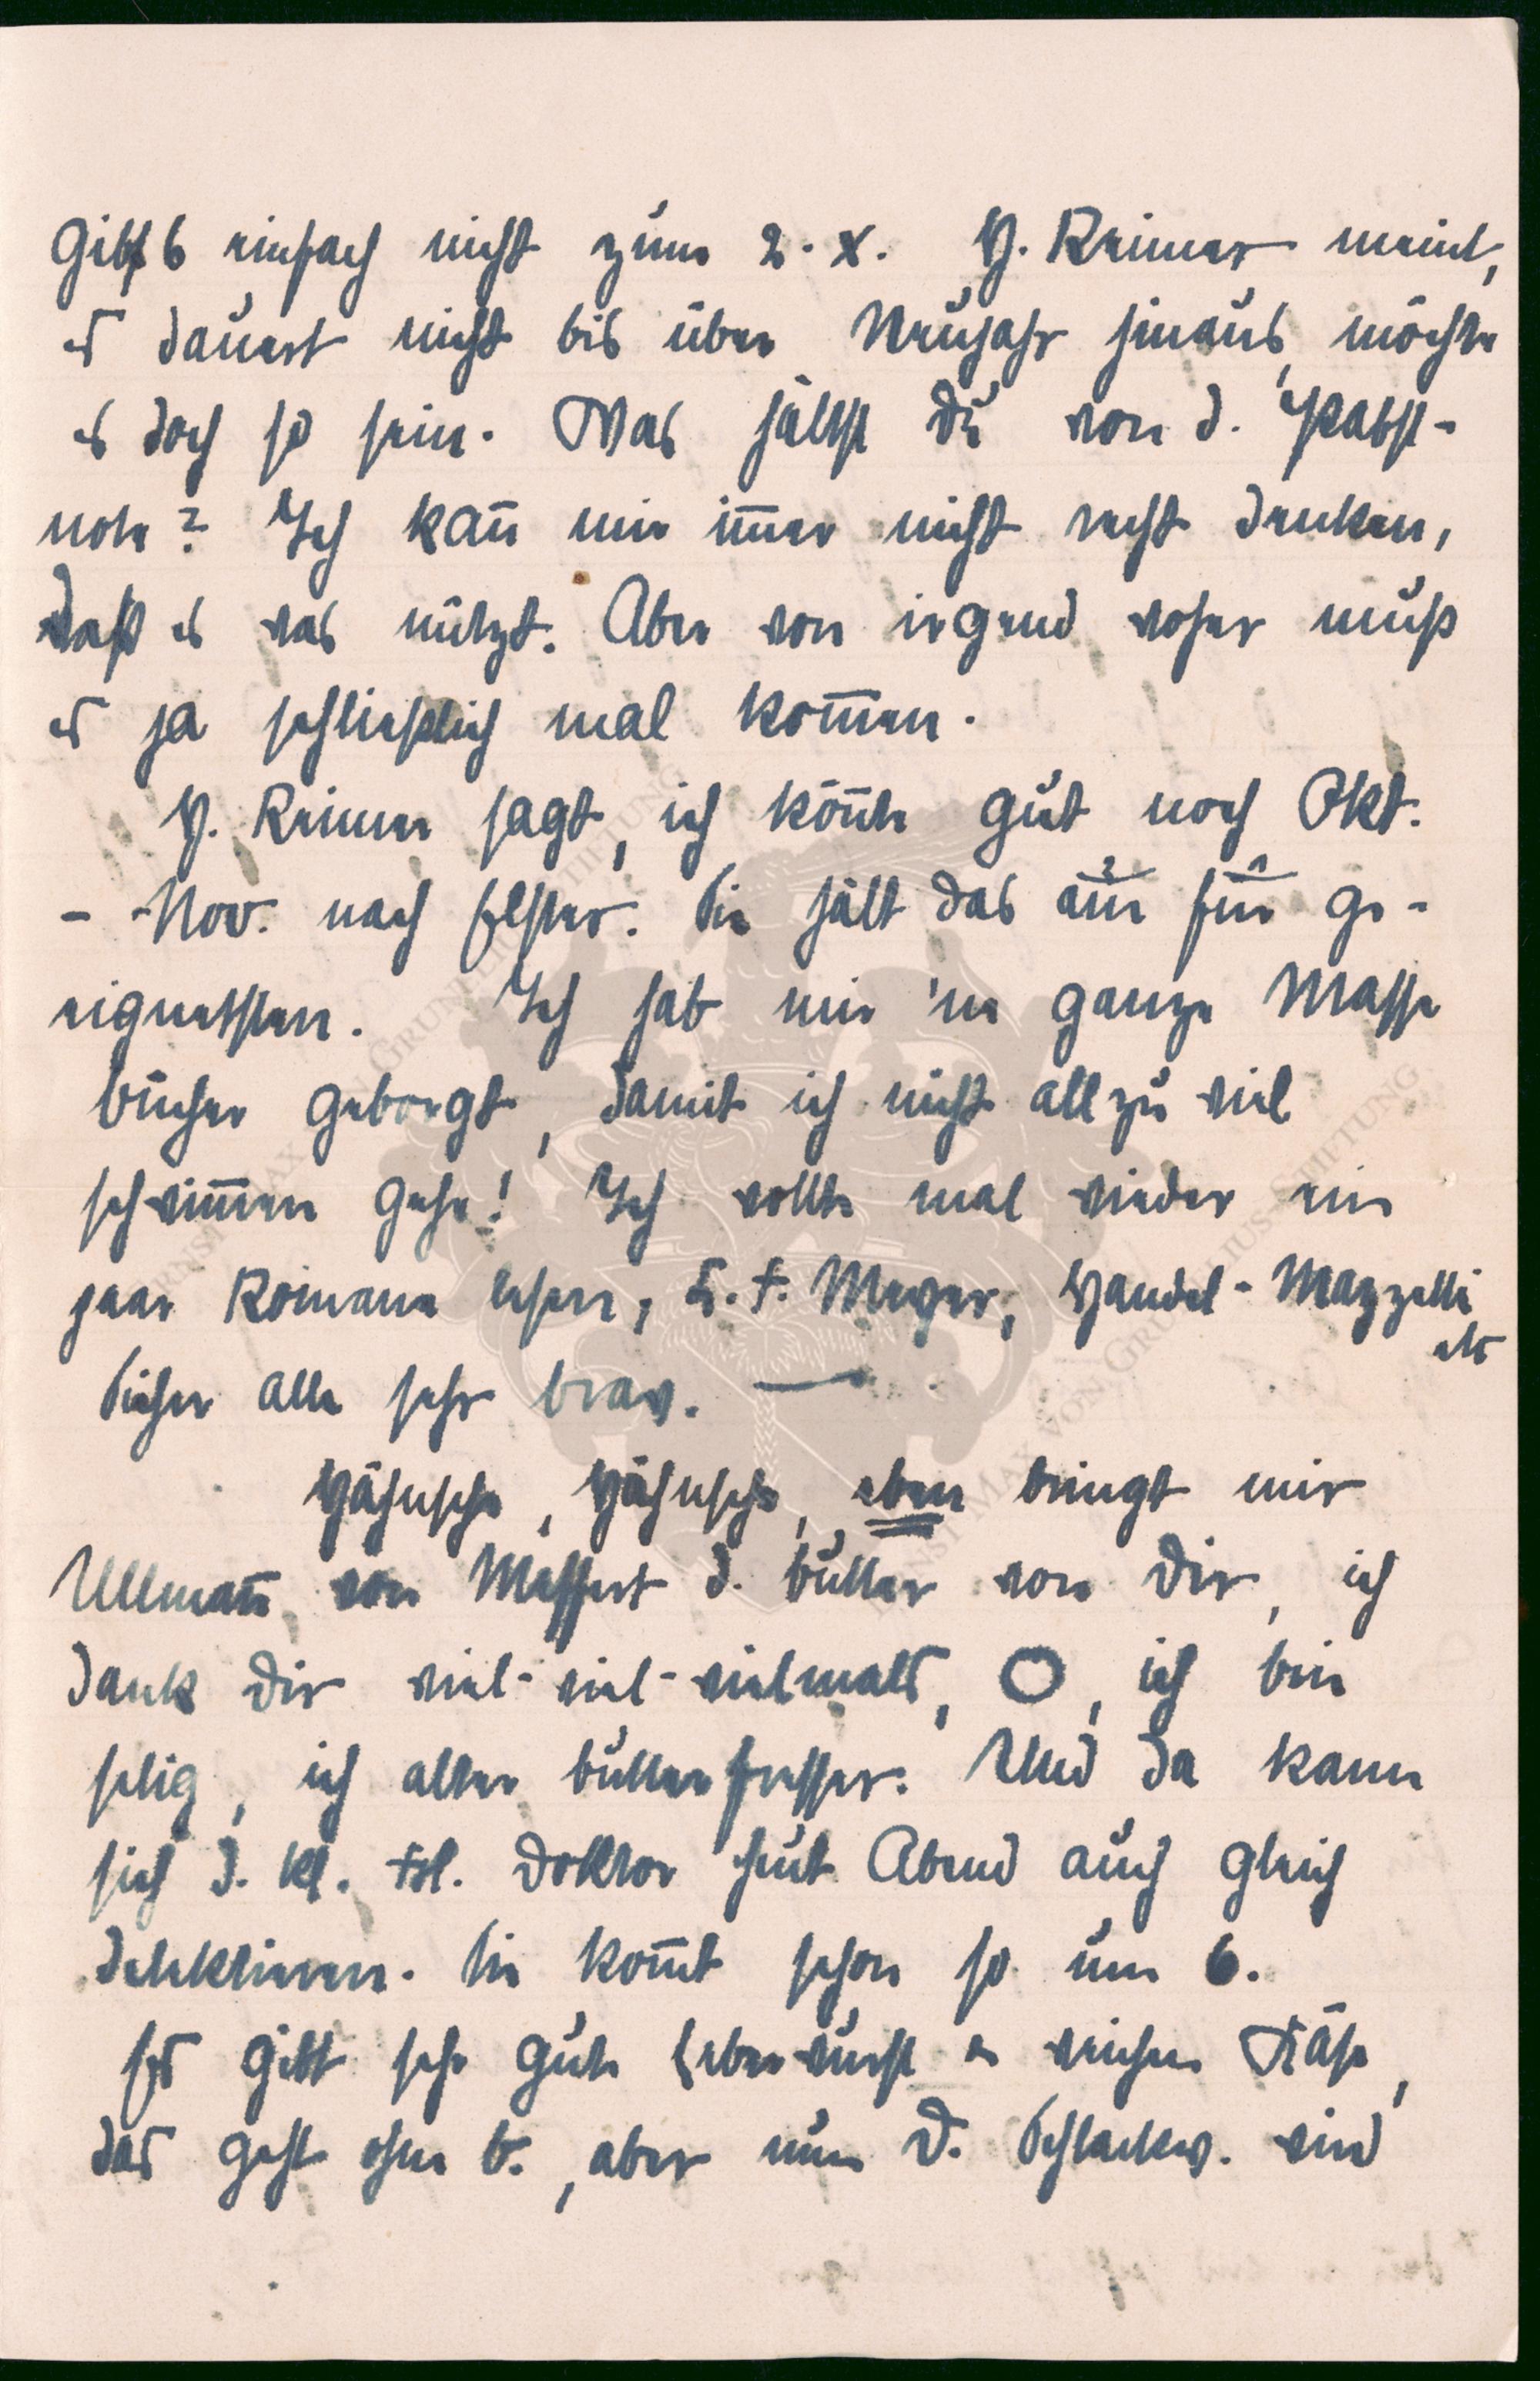 Gibts einfach nicht zum 2. X. H. Reimer meint,
es dauert nicht bis über Neujahr hinaus, möchte
es doch so sein. Was hältst Du von d. Pabst-
note? Ich kan̄ mir im̄er nicht recht denken,
daß es was nützt. Aber von irgend woher muß
es ja schließlich mal kom̄en.
H. Reimer sagt, ich kön̄te gut noch Okt.
- Nov. nach Elster. Sie hält das auch für ge-
eignetsten. Ich hab mir 'ne ganze Masse
Bücher geborgt, damit ich nicht allzu viel
schwim̄en gehe! Ich wollte mal wieder ein
paar Romane lesen, C. F. Meyer, Handel-Mazzetti
etc
Bücher alle sehr brav. —
Hähnsche, Hähnsche, eben bringt mir
Ullman̄ von Meffert d. Butter von Dir, ich
dank Dir viel-viel-vielmals, O, ich bin
selig, ich alter Butterfresser. Und da kann
sich d. kl. Frl. Doktor heut Abend auch gleich
delektieren. Sie kom̄t schon so um 6.
Es gibt sehr gute Leberwurst u weichen Käse,
das geht ohne B., aber nun d. Schlackw. wird